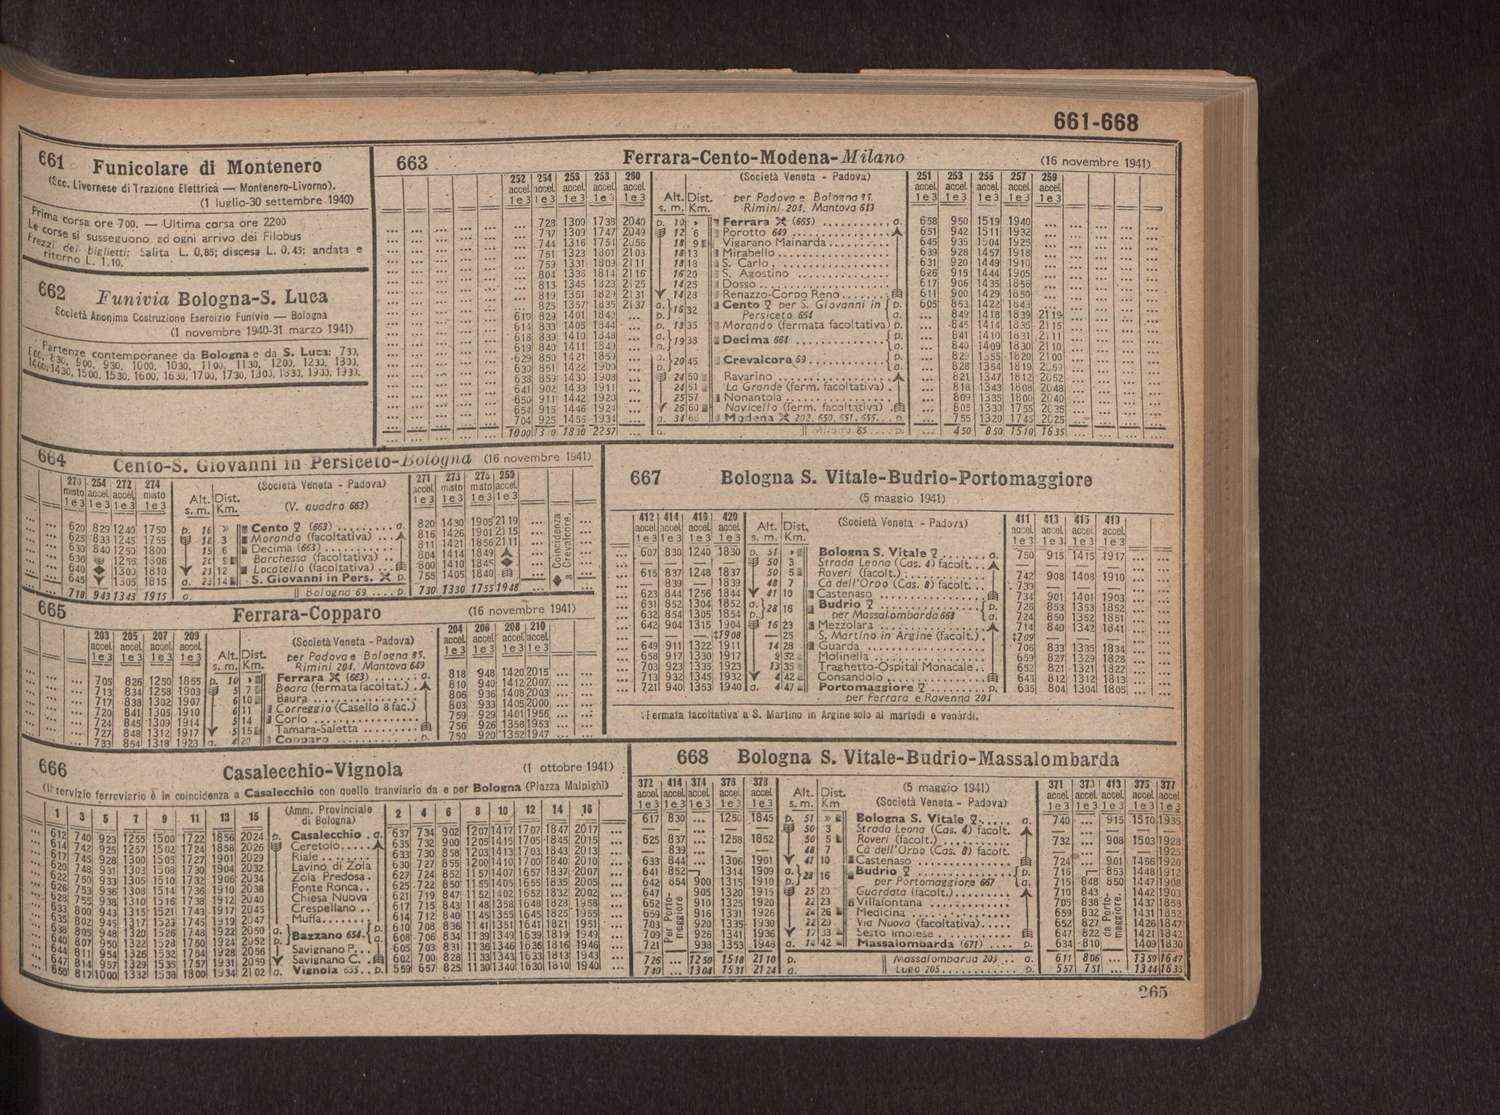 661-668
661 Funicolare di Montenero
(Soc. Livornese di Trazione Elettrica — Montenero-Livorno).
(1 luglio-30 settembre 1940)
Prima corsa ore 700. — Ultima corsa ore 2200
Le corse si susseguono ad ogni arrivo dei Filobus
Prezzi dei biglietti: Salita L. 0,85; discesa L. 0,45; andata e
ritorno L. 1,10.
662 Funivia Bologna-S. Luca
Società Anonima Costruzione Esercizio Funivio — Bologna
(1 novembre 1940-31 marzo 1941)
Partenze contemporanee da Bologna e da S. Luca: 730,
900, 930, 1000, 1030, 1100, 1130, 1200, 1230, 1300,
1430, 1500, 1530, 1600, 1630, 1700, 1730,
663 Ferrara-Cento-Modena-Milano (16 novembre 1941)
(Società Veneta - Padova)
252 254 256 258 260
251 253 255 257 259
Alt. s. m. Dist. Km.
per Padova e Bologna 85,
Rimini 204, Mantova 649
723 1300 1738 2040 p. 10 » Ferrara (665) a. 658 950 1519 1940
737 1309 1747 2049 12 6 Porotto 649 651 942 1511 1932
744 1316 1751 2056 18 9 Vigarano Mainarda 645 935 1504 1925
751 1323 1801 2103 18 13 Mirabello 639 928 1457 1918
759 1331 1809 2111 18 18 S. Carlo 631 920 1449 1910
804 1336 1814 2116 16 20 S. Agostino 626 915 1444 1905
813 1345 1823 2125 14 25 Dosso 617 906 1435 1856
819 1351 1829 2131 14 28 Renazzo-Corpo Reno 611 900 1429 1850
825 1357 1835 2137 Cento per S. Giovanni in 605 853 1422 1843
610 829 1401 1840 16 32 Persiceto 664 849 1418 1839 2119
614 833 1405 1844 18 35 Morando (fermata facoltativa) p. 845 1414 1835 2115
618 839 1410 1848 19 38 Decima 664 841 1410 1831 2111
619 840 1411 1849 840 1409 1830 2110
629 850 1421 1859 20 45 Crevalcore 69 829 1355 1820 2100
630 851 1422 1900 828 1354 1819 2059
638 859 1430 1908 24 50 Ravarino 821 1347 1812 2052
641 902 1433 1911 24 51 La Grande (ferm. facoltativa) 818 1343 1808 2048
650 911 1442 1920 25 57 Nonantola 809 1335 1800 2040
654 915 1446 1924 26 60 Navicello (ferm. facoltativa) 805 1330 1755 2035
704 925 1455 1934 a. 34 66 Modena 202, 650, 651, 655 p. 755 1320 1745 2025
1000 1830 2257 a. Milano 65 p. 450 850 1510 1635
664 Cento-S. Giovanni in Persiceto-Bologna (16 novembre 1941)
254 272 274
271 273 275 259
(Società Veneta - Padova)
(V. quadro 663)
Alt. s. m. Dist. Km.
620 829 1240 1750 p. 16 » Cento (663) a. 820 1430 1905 2119
625 833 1245 1755 18 3 Morando (facoltativa) 816 1426 1901 2115
630 840 1250 1800 15 6 Decima (663) 811 1421 1856 2111
1256 1806 Barchessa (facoltativa) 804 1414 1849
640 1300 1810 21 12 Locatello (facoltativa) 800 1410 1845
645 1305 1815 a. 23 14 S. Giovanni in Pers. p. 755 1405 1840
718 943 1343 1915 a. Bologna 69 p. 730 1330 1755 1948
Coincidenza Crevalcore.
665 Ferrara-Copparo (16 novembre 1941)
203 205 207 209
204 206 208 210
(Società Veneta - Padova)
per Padova e Bologna 85,
Rimini 204, Mantova 649
Alt. s. m. Dist. Km.
705 826 1250 1855 p. 10 » Ferrara (663) a. 818 948 1420 2015
713 834 1258 1903 5 7 Boara (fermata facoltat.) 810 940 1412 2007
717 838 1302 1907 6 10 Baura 806 936 1408 2003
720 841 1305 1910 6 11 Correggio (Casello 8 fac.) 803 933 1405 2000
724 845 1309 1914 5 14 Corlo 759 929 1401 1956
727 848 1312 1917 5 15 Tamara-Saletta 756 926 1358 1953
733 854 1318 1923 a. 4 20 Copparo p. 750 920 1352 1947
666 Casalecchio-Vignola (1 ottobre 1941)
(Il servizio ferroviario è in coincidenza a Casalecchio con quello tranviario da e per Bologna (Piazza Malpighi)
1 3 5 7 9 11 13 15
(Amm. Provinciale di Bologna)
2 4 6 8 10 12 14 16
612 740 923 1255 1500 1722 1856 2024 p. Casalecchio a. 637 734 902 1207 1417 1707 1847 2017
614 742 925 1257 1502 1724 1858 2026 Ceretolo 635 732 900 1205 1415 1705 1845 2015
617 745 928 1300 1505 1727 1901 2029 Riale 633 730 858 1203 1413 1703 1843 2013
620 748 931 1303 1508 1730 1904 2032 Lavino di Zola 630 727 855 1200 1410 1700 1840 2010
622 750 933 1305 1510 1732 1906 2034 Zola Predosa 627 724 852 1157 1407 1657 1837 2007
626 753 936 1308 1514 1736 1910 2038 Ponte Ronca 625 722 850 1155 1405 1655 1835 2005
628 755 938 1310 1516 1738 1912 2040 Chiesa Nuova 621 719 847 1152 1402 1652 1832 2002
633 800 943 1315 1521 1743 1917 2045 Crespellano 617 715 843 1148 1358 1648 1828 1958
635 802 945 1317 1523 1745 1919 2047 Muffa 614 712 840 1145 1355 1645 1825 1955
638 805 948 1320 1526 1748 1922 2050 a. Bazzano 654 p. 610 708 836 1141 1351 1641 1821 1951
640 807 950 1322 1528 1750 1924 2052 p. a. 608 706 834 1139 1349 1639 1819 1949
644 811 954 1326 1532 1754 1928 2056 Savignano P. 605 703 831 1136 1346 1636 1816 1946
647 814 957 1329 1535 1757 1931 2059 Savignano C. 602 700 828 1133 1343 1633 1813 1943
650 817 1000 1332 1538 1800 1934 2102 a. Vignola 655 p. 559 657 825 1130 1340 1630 1810 1940
667 Bologna S. Vitale-Budrio-Portomaggiore
(5 maggio 1941)
412 414 416 420
411 413 415 419
(Società Veneta - Padova)
Alt. s. m. Dist. Km.
607 830 1240 1830 p. 51 » Bologna S. Vitale a. 750 915 1415 1917
— — — — 50 3 Strada Leona (Cas. 4) facolt. — — — —
615 837 1248 1837 50 5 Roveri (facolt.) 742 908 1408 1910
— 839 — 1839 48 7 Cà dell'Orbo (Cas. 8) facolt. 739 — — —
623 844 1256 1844 41 10 Castenaso 734 901 1401 1903
631 852 1304 1852 a. 28 16 Budrio p. 726 853 1353 1852
632 854 1305 1854 p. per Massalombarda 668 a. 724 850 1352 1851
642 904 1315 1904 16 23 Mezzolara 714 840 1342 1841
— — — ‡1908 — 25 S. Martino in Argine (facolt.) ‡709 — — —
649 911 1322 1911 14 28 Guarda 706 833 1335 1834
658 917 1330 1917 9 32 Molinella 659 827 1329 1828
703 923 1335 1923 13 35 Traghetto-Ospital Monacale 652 821 1321 1822
713 932 1345 1932 4 42 Consandolo 643 812 1312 1813
721 940 1353 1940 a. 4 47 Portomaggiore p. 635 804 1304 1805
per Ferrara e Ravenna 201
‡ Fermata facoltativa a S. Martino in Argine solo ai martedì e venerdì.
668 Bologna S. Vitale-Budrio-Massalombarda
372 414 374 376 378
371 373 413 375 377
(5 maggio 1941)
(Società Veneta - Padova)
Alt. s. m. Dist. Km
617 830 ... 1250 1845 p. 51 » Bologna S. Vitale a. 740 ... 915 1510 1935
50 3 Strada Leona (Cas. 4) facolt.
625 837 ... 1258 1852 50 5 Roveri (facolt.) 732 ... 908 1503 1928
— 839 ... — — 48 7 Cà dell'Orbo (Cas. 8) facolt. — 1925
633 844 ... 1306 1901 41 10 Castenaso 724 901 1456 1920
641 852 1314 1909 a. 28 16 Budrio p. 716 853 1448 1912
642 854 900 1315 1910 p. per Portomaggiore 667 a. 715 848 850 1447 1908
647 905 1320 1915 25 20 Guardata (facolt.) 710 843 1442 1903
652 910 1325 1920 22 23 Villafontana 705 838 1437 1858
659 916 1331 1926 24 26 Medicina 659 832 1431 1852
703 920 1335 1930 22 29 Via Nuova (facoltativa) 652 827 1426 1847
709 926 1341 1936 17 33 Sesto Imolese 647 822 1421 1842
721 938 1353 1948 a. 14 42 Massalombarda (671) p. 634 810 1409 1830
726 ... 1250 1518 2110 p. Massalombarda 205 a. 611 806 ... 1359 1647
740 ... 1304 1531 2124 a. Lugo 205 p. 557 751 ... 1344 1633
Per Portomaggiore
da Portomaggiore.
265